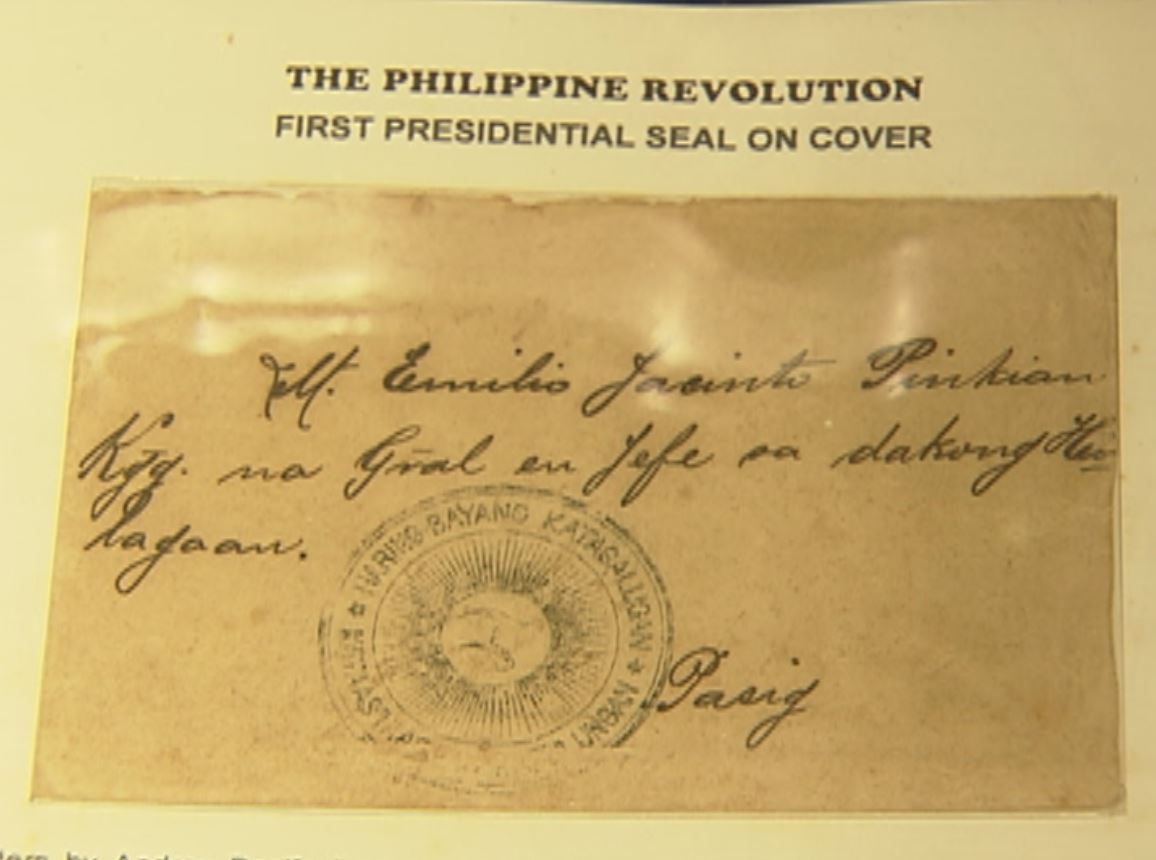 THE PHILIPPINE REVOLUTION
FIRST PRESIDENTIAL SEAL ON COVER
Emilio Jacinto Pinkian
Kgg. na Gral en Jefe sa dakong Hi-
lagaan.
HARING-BAYANG KATAGALUGAN
Pasig
by